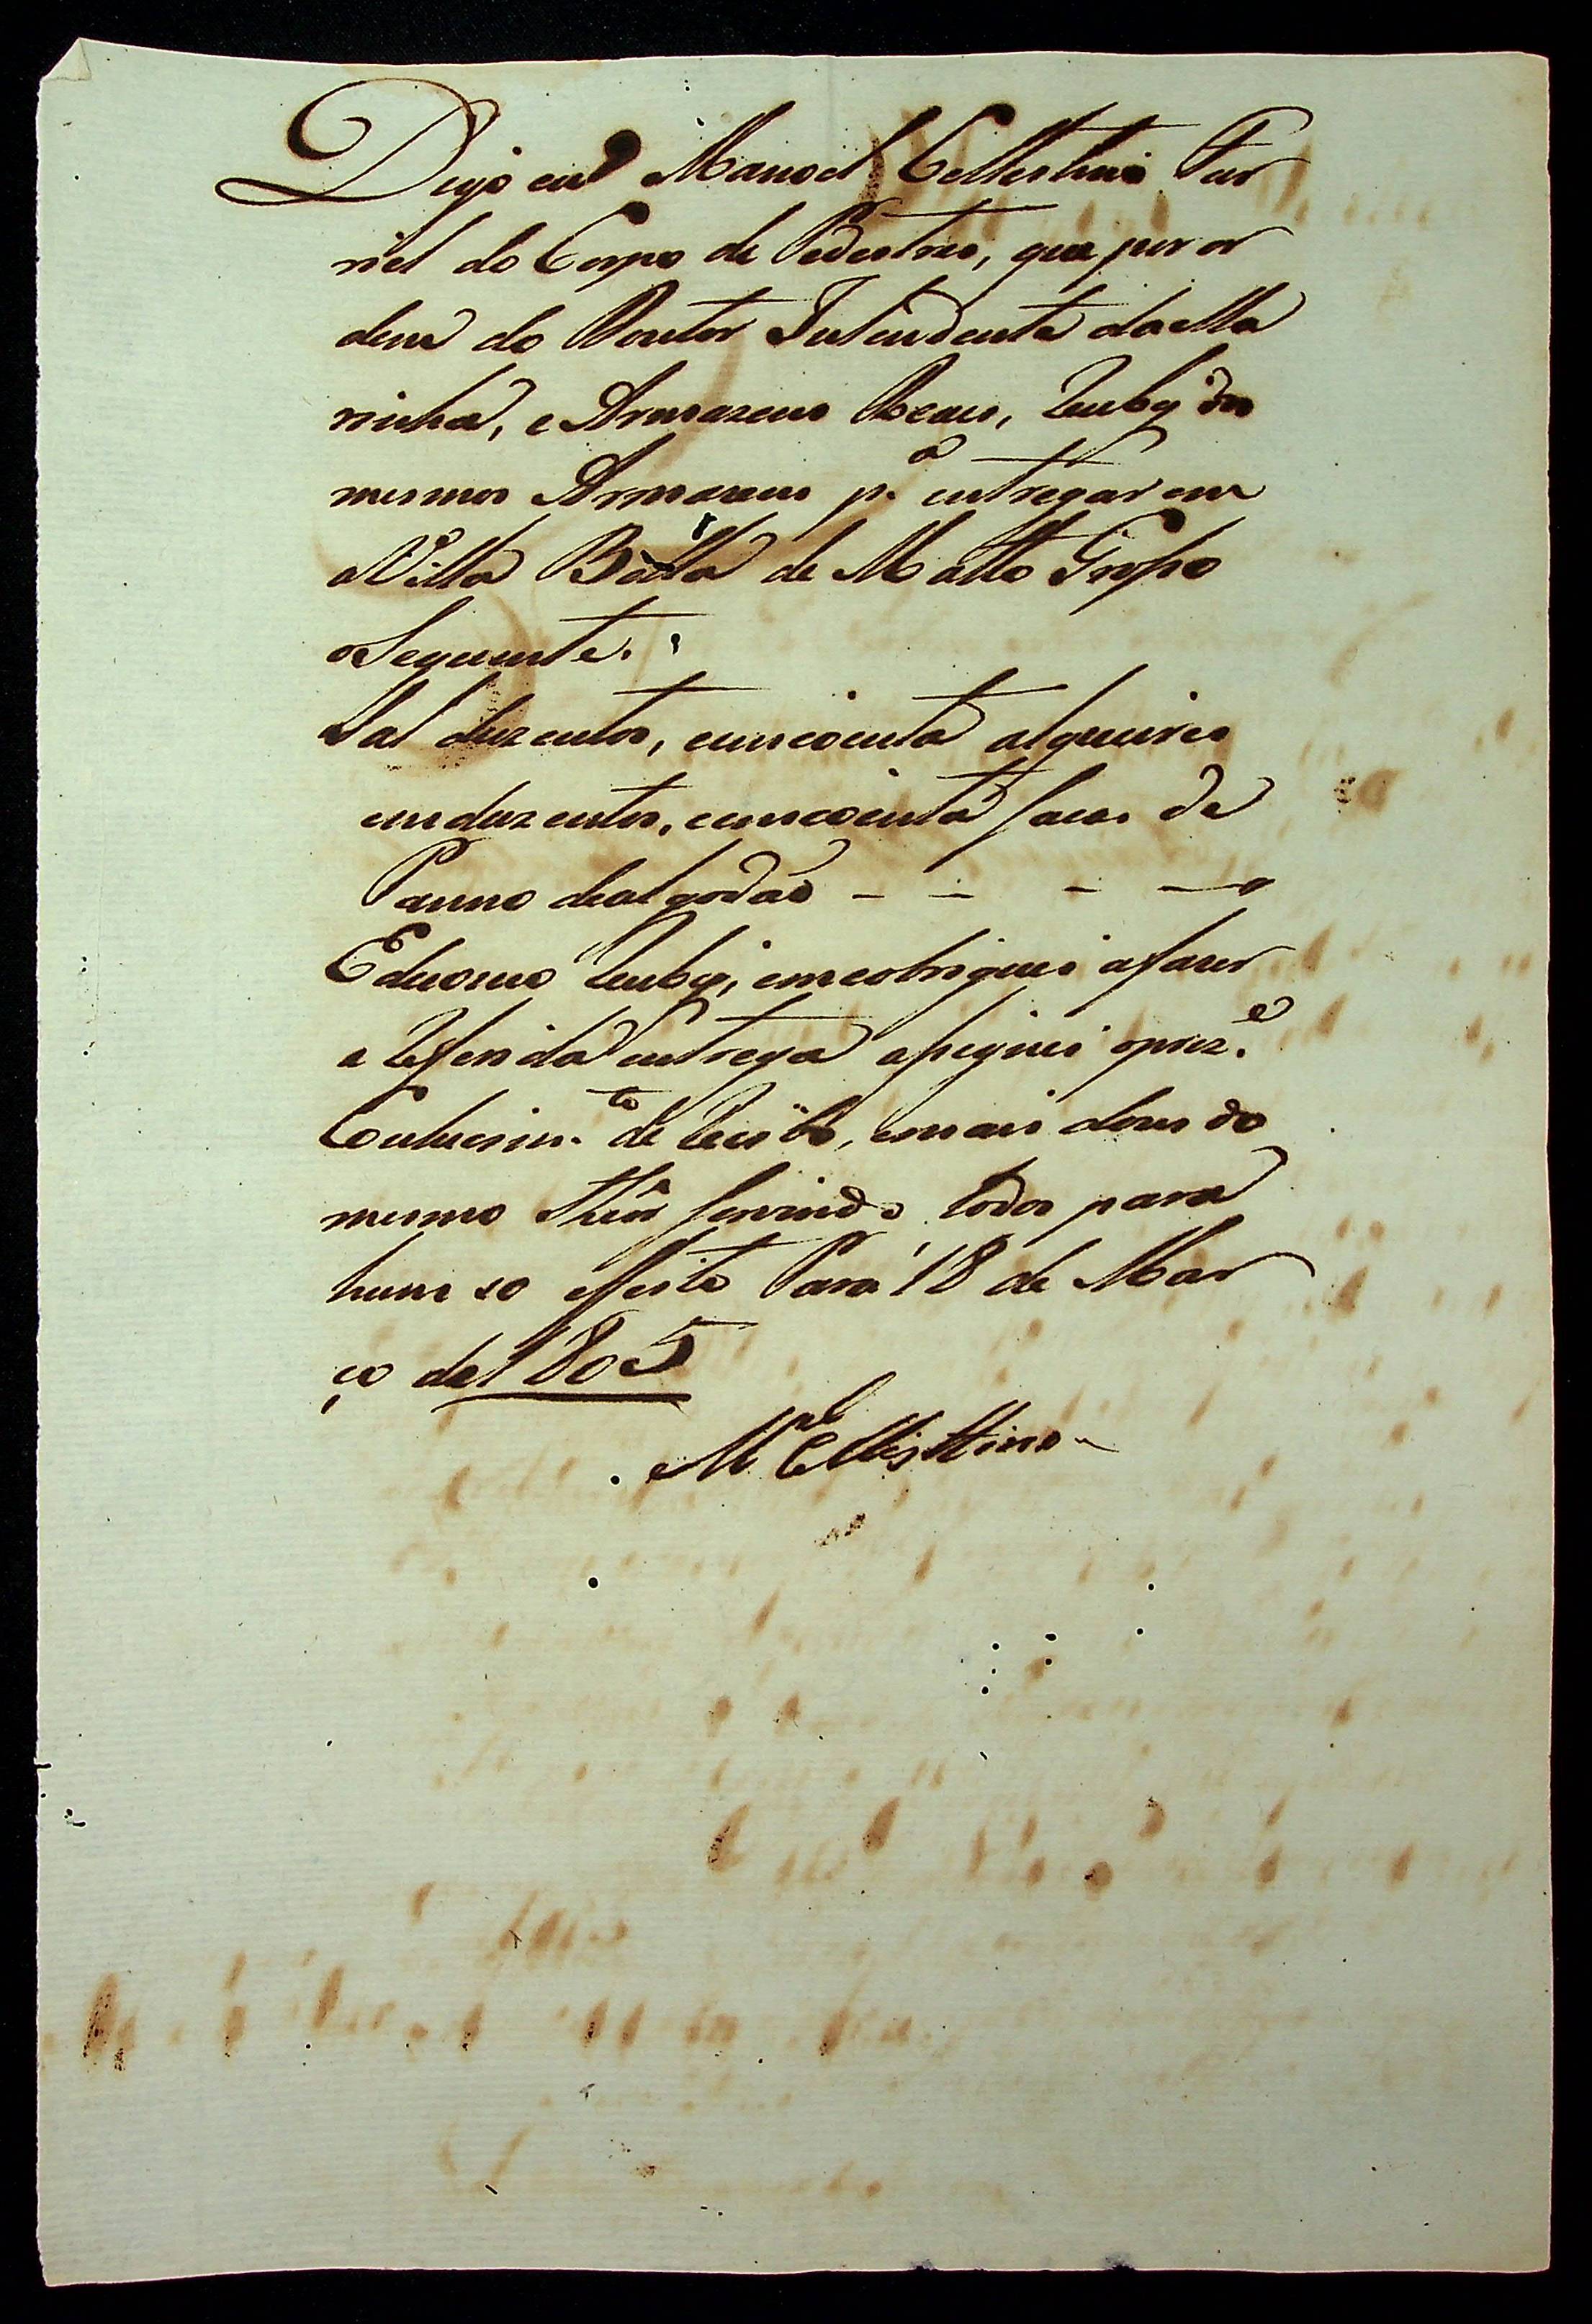 Digo eu Manoel Cellestino Fur
riel do Corpo de Pedestres, que por or
dem do Doutor Intendente da Ma
rinha, e Armazens Reaes, Recby dos
mesmos Armazens p.ª entregar em
Villa Bella de Matto Grosso
o Seguinte.
Sal duzentos, cincoenta alqueires
em duzentos, cincoenta sacas de
Panno de algodão - - - -
E de como Recby, e me obriguei a fazer
a referida entrega assignei o prez.e
Conhecim.to de Recibo, e mais dous do
mesmo Theôr servindo todos para
hum so effeito Pará 18 de Mar
ço de 1805
M.el Cellesttino